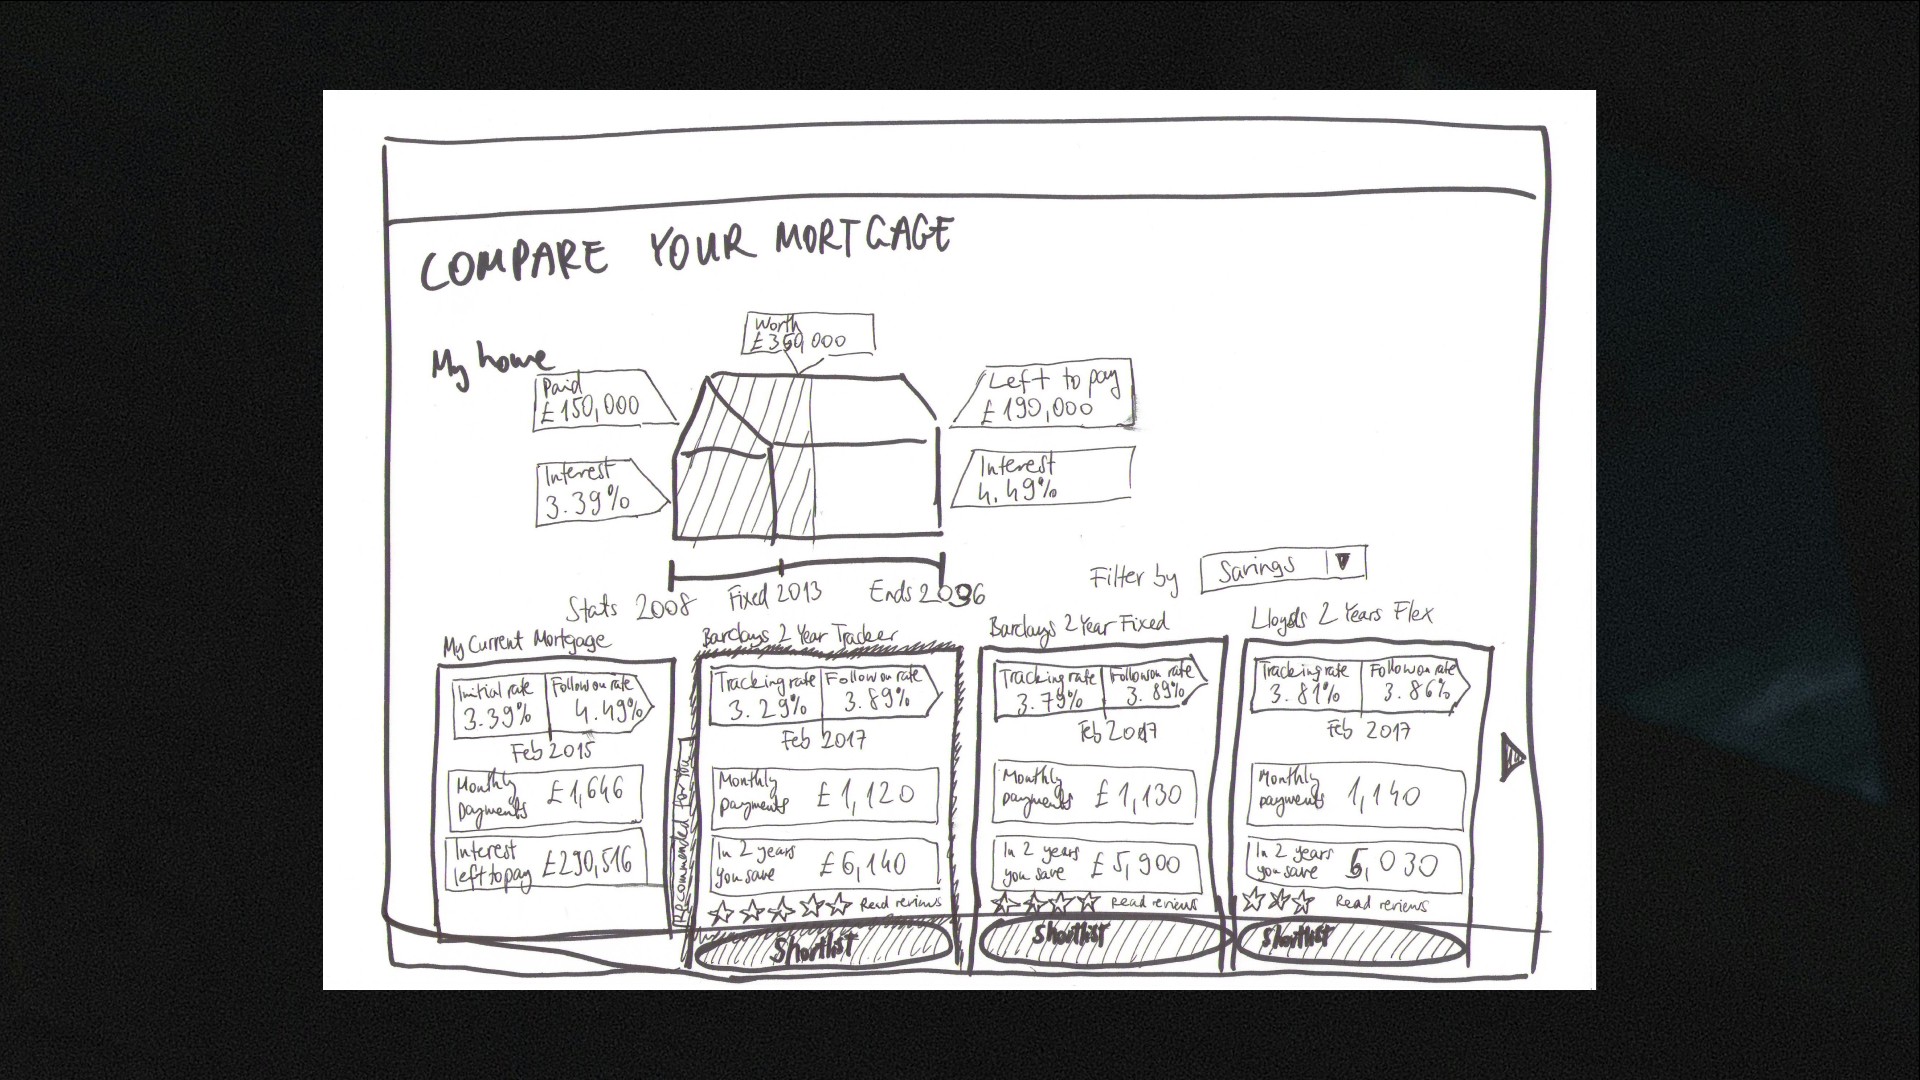 COMPARE YOUR MORTGAGE
My home
Worth
£350,000
Paid
£150,000
Left to pay
£190,000
Interest
3.39%
Interest
4.49%
Stats 2008
Fixed 2013
Ends 2036
Filter by
Savings
My Current Mortgage
Initial rate
3.39%
Follow on rate
4.49%
Feb 2015
Monthly
payments
£1,646
Interest
left to pay
£290,516
Recommended for You
Barclays 2 Year Tracker
Tracking rate
3.29%
Follow on rate
3.89%
Feb 2017
Monthly
payments
£1,120
In 2 years
you save
£6,140
Read reviews
Shortlist
Barclays 2 Year Fixed
Tracking rate
3.79%
Follow on rate
3.89%
Feb 2017
Monthly
payments
£1,130
In 2 years
you save
£5,900
Read reviews
Shortlist
Lloyds 2 Years Flex
Tracking rate
3.81%
Follow on rate
3.86%
Feb 2017
Monthly
payments
1,140
In 2 years
you save
5,030
Read reviews
Shortlist